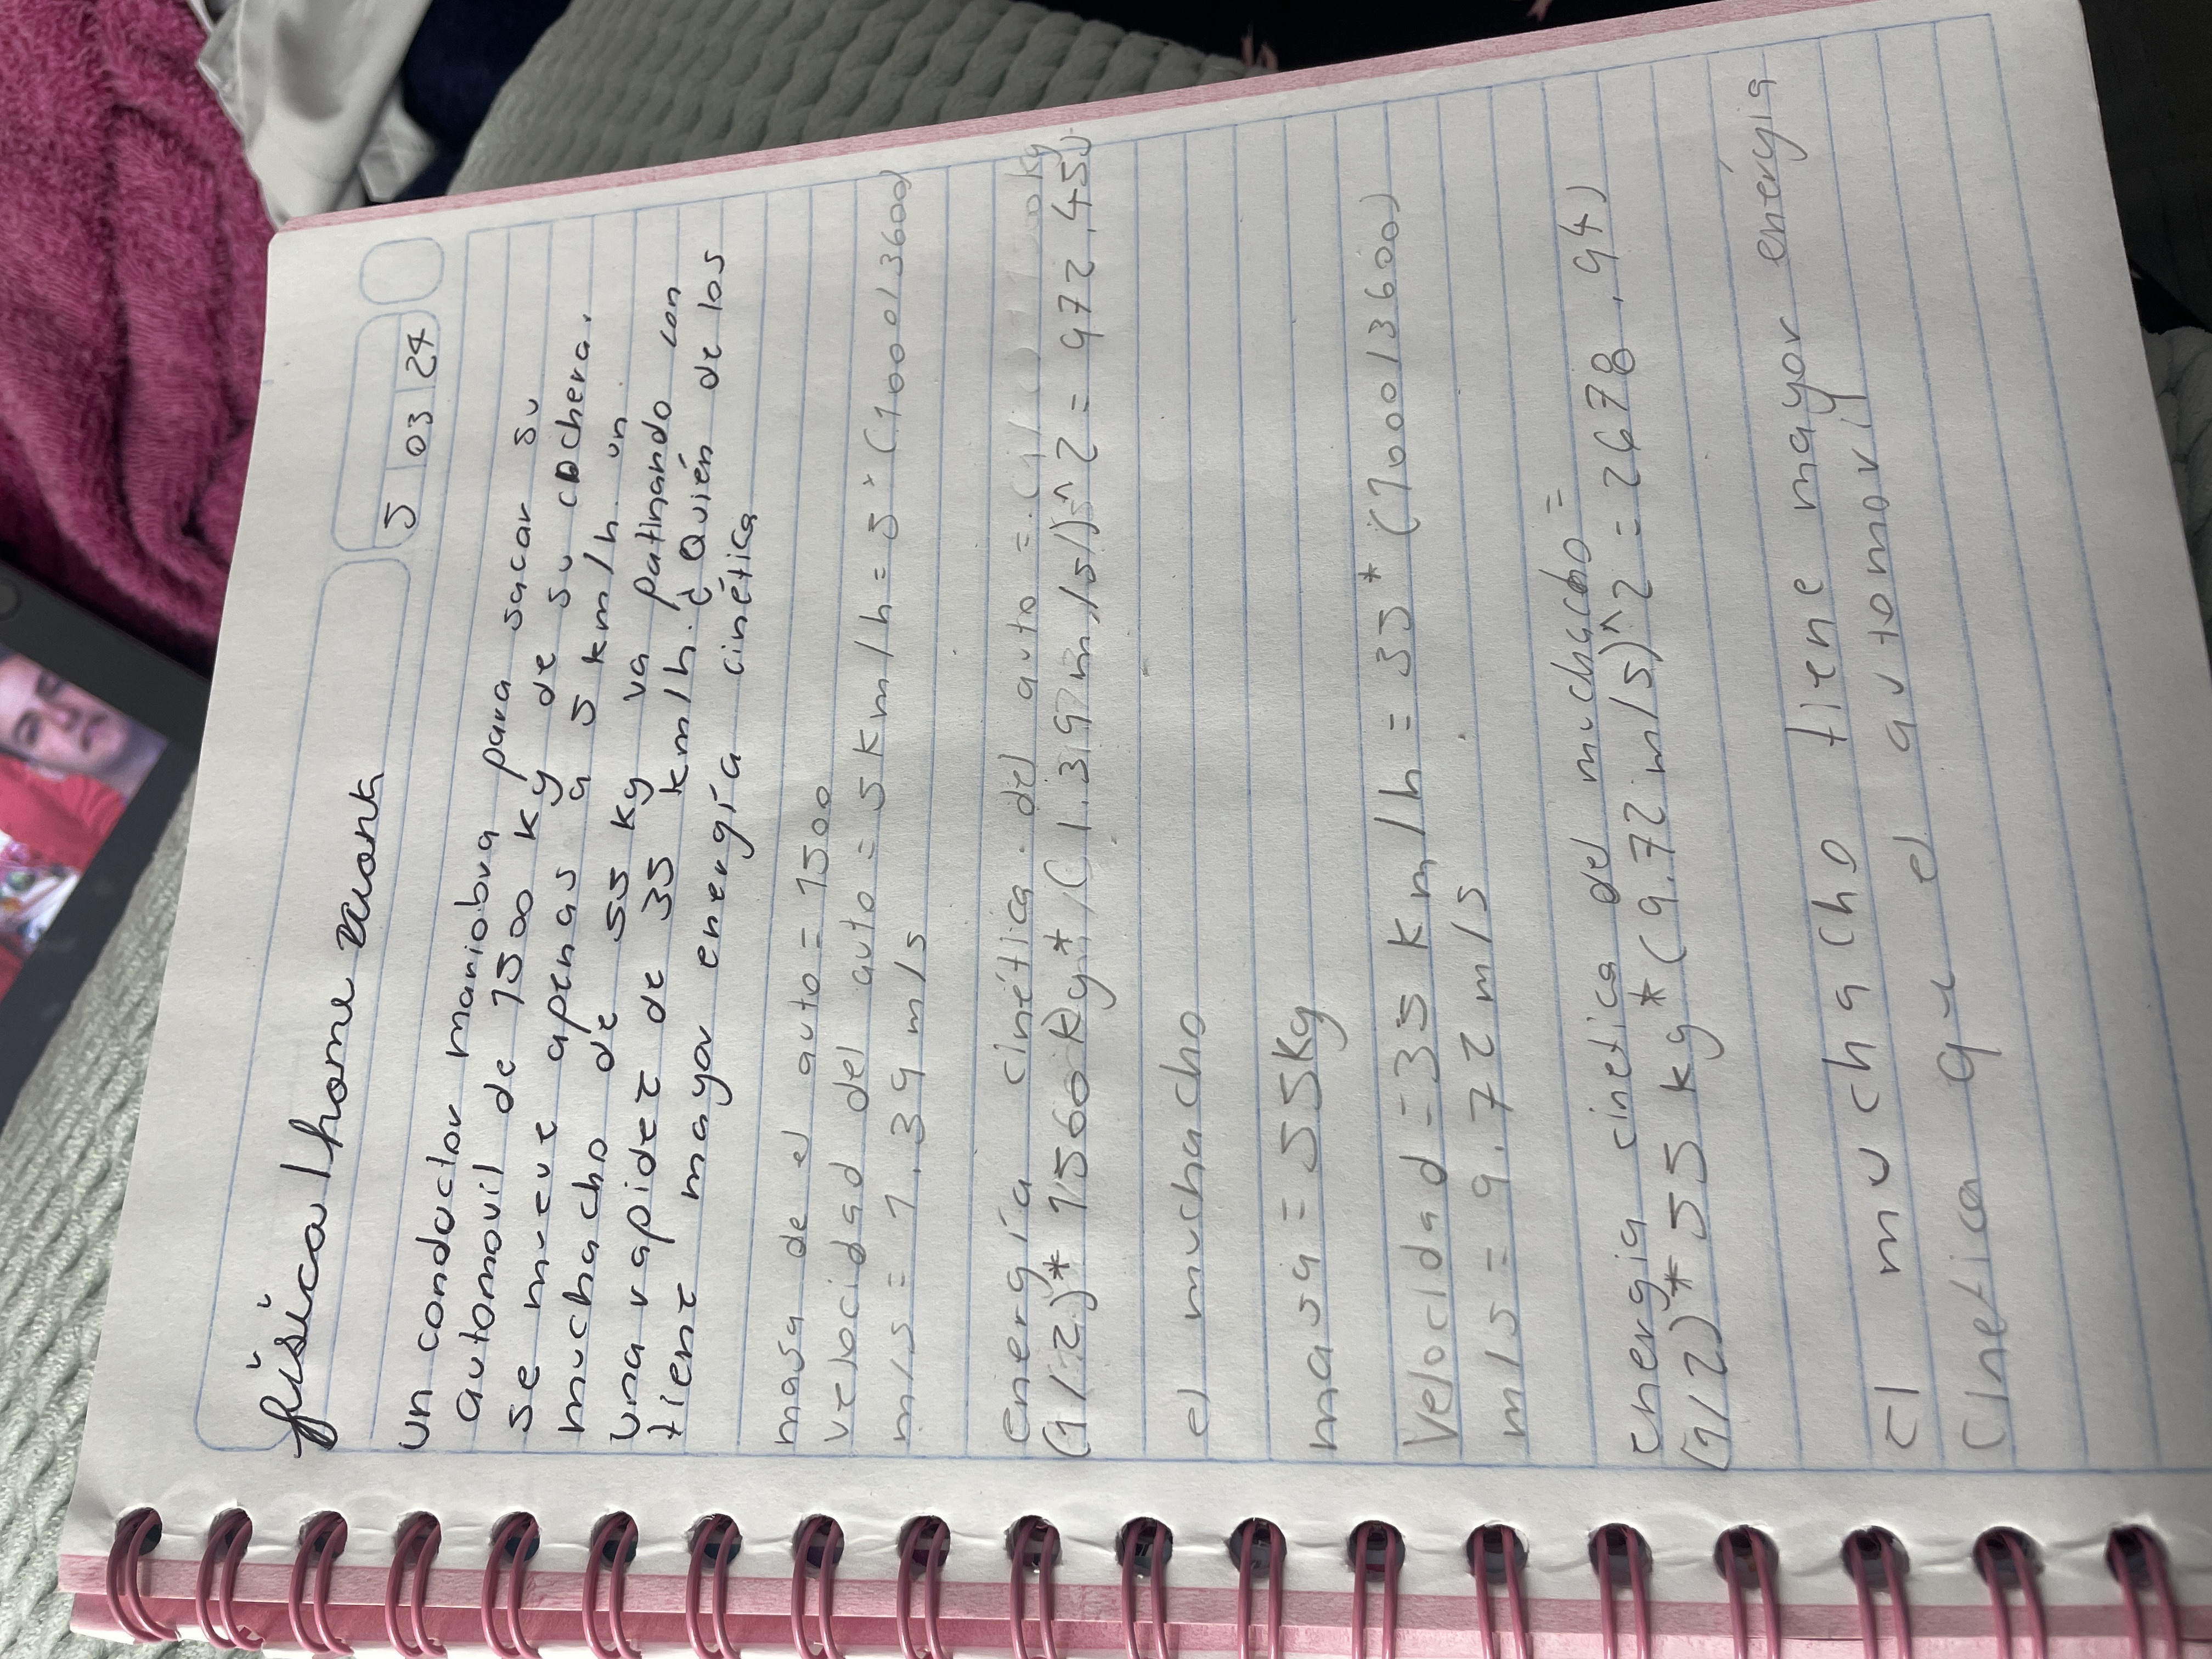 física / home work
5 03 24
un conductor maniobra para sacar su
automovil de 1500 kg de su cochera.
se mueve apenas a 5 km/h. un
muchacho de 55 kg va patinando con
una rapidez de 35 km/h. ¿Quién de los
tiene mayor energía cinética
masa de el auto = 1500
velocidad del auto = 5 Km/h = 5 * (1000/3600)
m/s = 1.39 m/s
energía cinética del auto =
(1/2) * 1500 Kg * (1.39 m/s)^2 = 972.45J
el muchacho
masa = 55Kg
Velocidad = 35 Km/h = 35 * (1000/3600)
m/s = 9.72 m/s
energia cinetica del muchacho =
(1/2) * 55 kg * (9.72 m/s)^2 = 2678.94J
el muchacho tiene mayor enérgia
Cinetica que el automovil